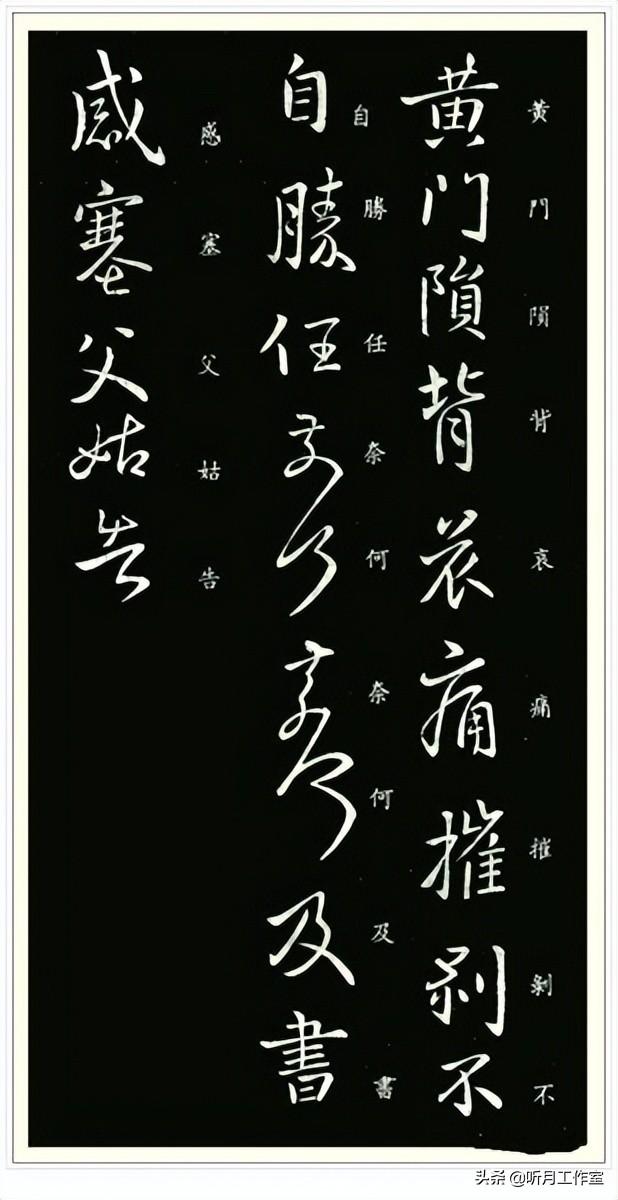 黃門隕背哀痛摧剝不
黃門隕背哀痛摧剝不
自勝任奈何奈何及書
自勝任奈何奈何及書
感塞父姑告
感塞父姑告
头条 @听月工作室